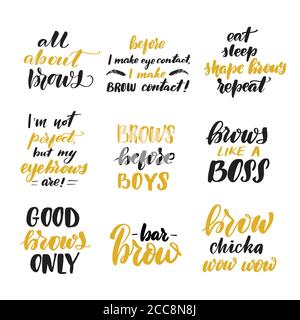 all
about
brows
before
I make eye contact,
I make
BROW contact!
eat
sleep
shape brows
repeat
I'm not
perfect,
but my
eyebrows
– are! –
BROWS
before
BOYS
brows
LIKE A
BOSS
GOOD
brows
ONLY
-bar-
brow
brow
chicka
wow wow
alamy
www.alamy.com
2CC8N8J